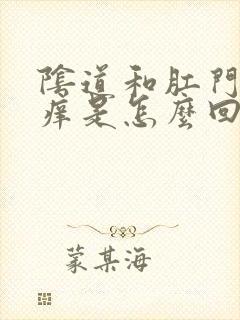 陰道和肛門
痒是怎麼回
蒙某海